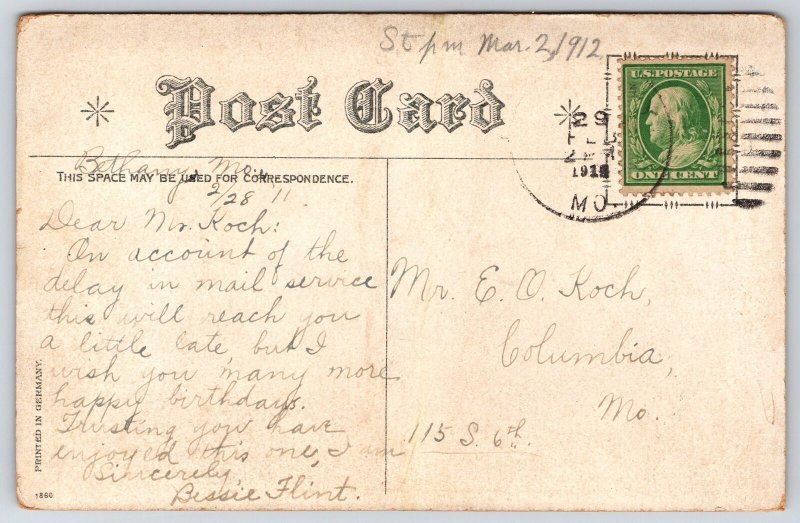 St pm Mar. 2, 1912
Post Card
Bethany, Mo.,
THIS SPACE MAY BE USED FOR CORRESPONDENCE.
2/28 '11
Dear Mr. Koch:
On account of the
delay in mail service
this will reach you
a little late, but I
wish you many more
happy birthdays.
Trusting you have
enjoyed this one, I am
Sincerely,
Bessie Flint.
PRINTED IN GERMANY.
1860
29
FEB
191
MO.
U.S. POSTAGE
ONE CENT
Mr. E. O. Koch,
Columbia,
Mo.
115 S. 6th.